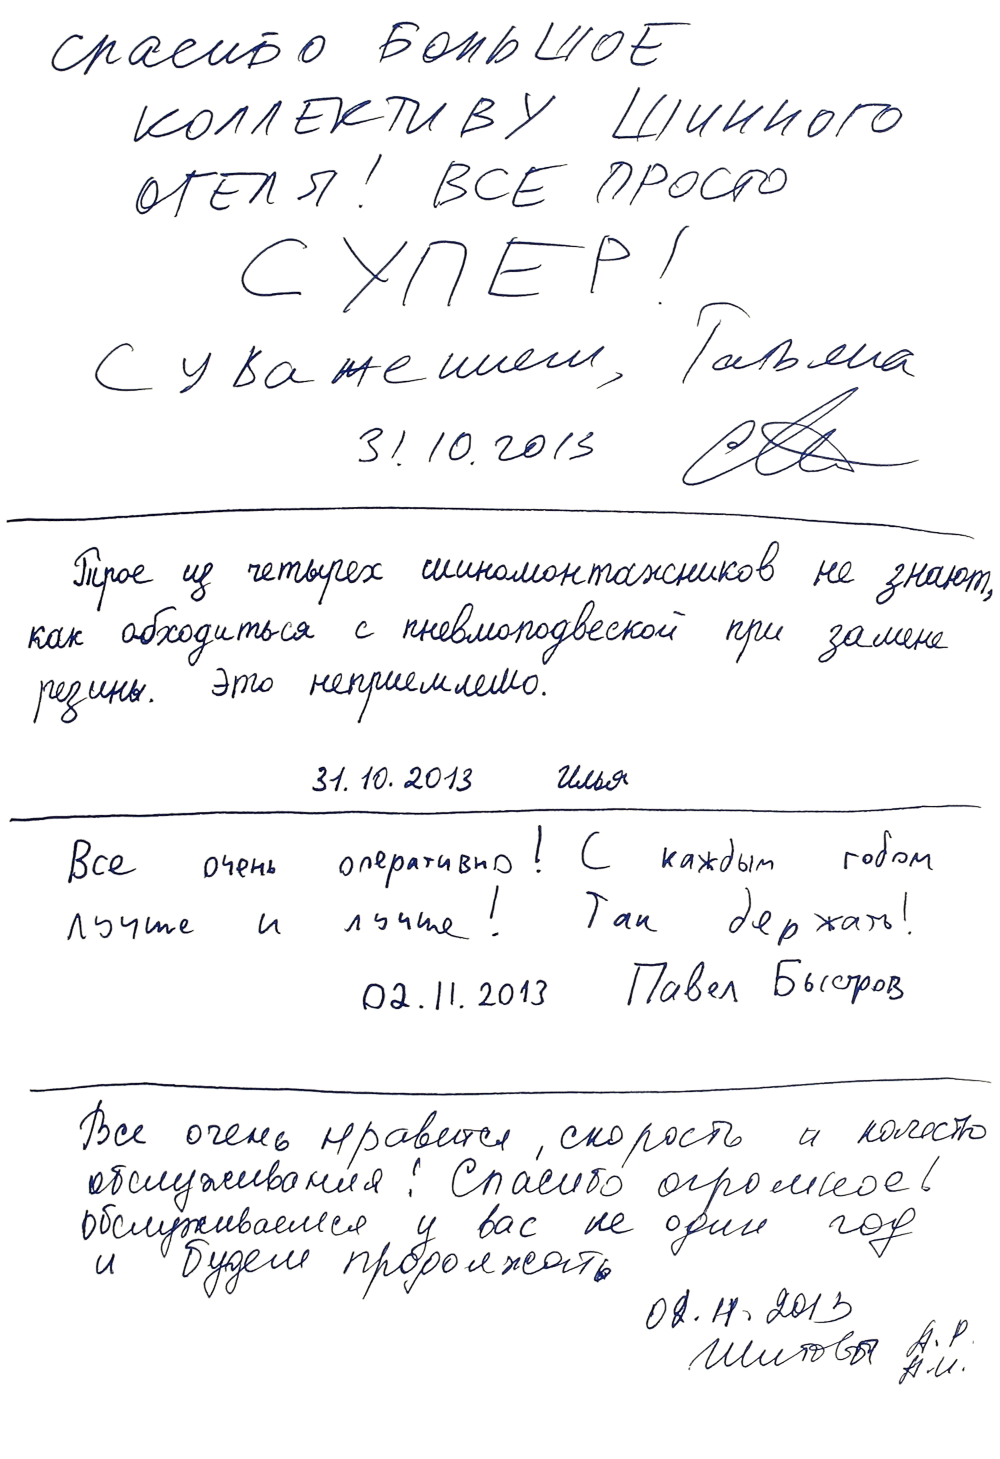 спасибо БОЛЬШОЕ
КОЛЛЕКТИВУ ШИННОГО
ОТЕЛЯ! ВСЕ ПРОСТО
СУПЕР!
С уважением, Татьяна
31.10.2013
Трое из четырех шиномонтажников не знают,
как обходиться с пневмоподвеской при замене
резины. Это неприемлемо.
31.10.2013 Илья
Все очень оперативно! С каждым годом
лучше и лучше! Так держать!
02.11.2013 Павел Быстров
Все очень нравится, скорость и качество
обслуживания! Спасибо огромное!
обслуживаемся у вас не один год
и будем продолжать
02.11.2013
А.Р.
А.И.